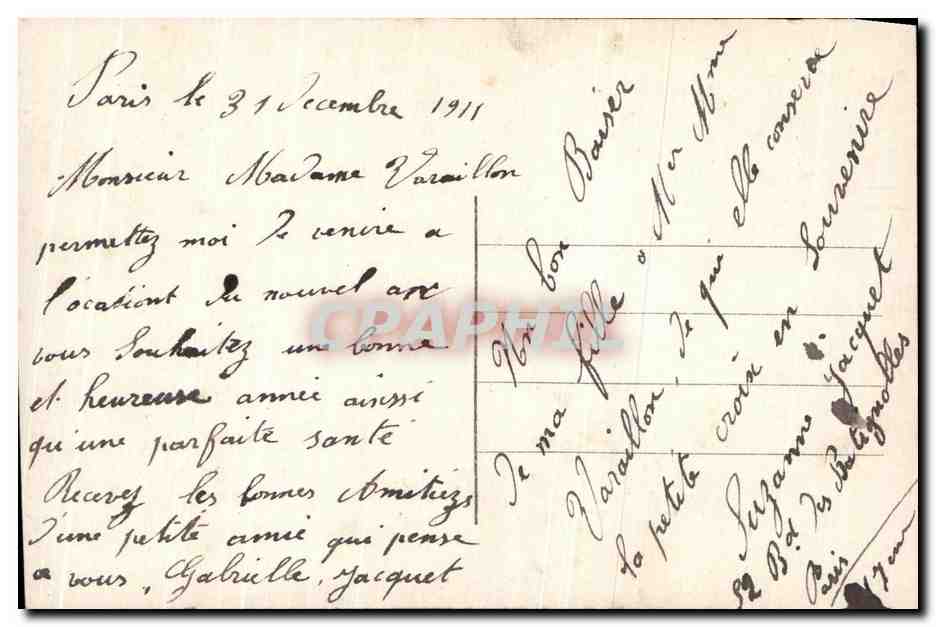 Paris le 31 Decembre 1911
Monsieur Madame Varaillon
permettez moi de venire a
l'ocationt du nouvel an
vous souhaitez une bonne
et heureuse année ainssi
qu'une parfaite santé
Recevez les bonnes Amitiezs
d'une petite amie qui pense
a vous, Gabrielle, Jacquet
Un bon Baiser
De ma fille a Mr Mme
Varaillon, de qui elle conserve
la petite croix en souvenire
Suzanne Jacquet
52 Bd des Batignolles
Paris 17eme
CPAPHIL